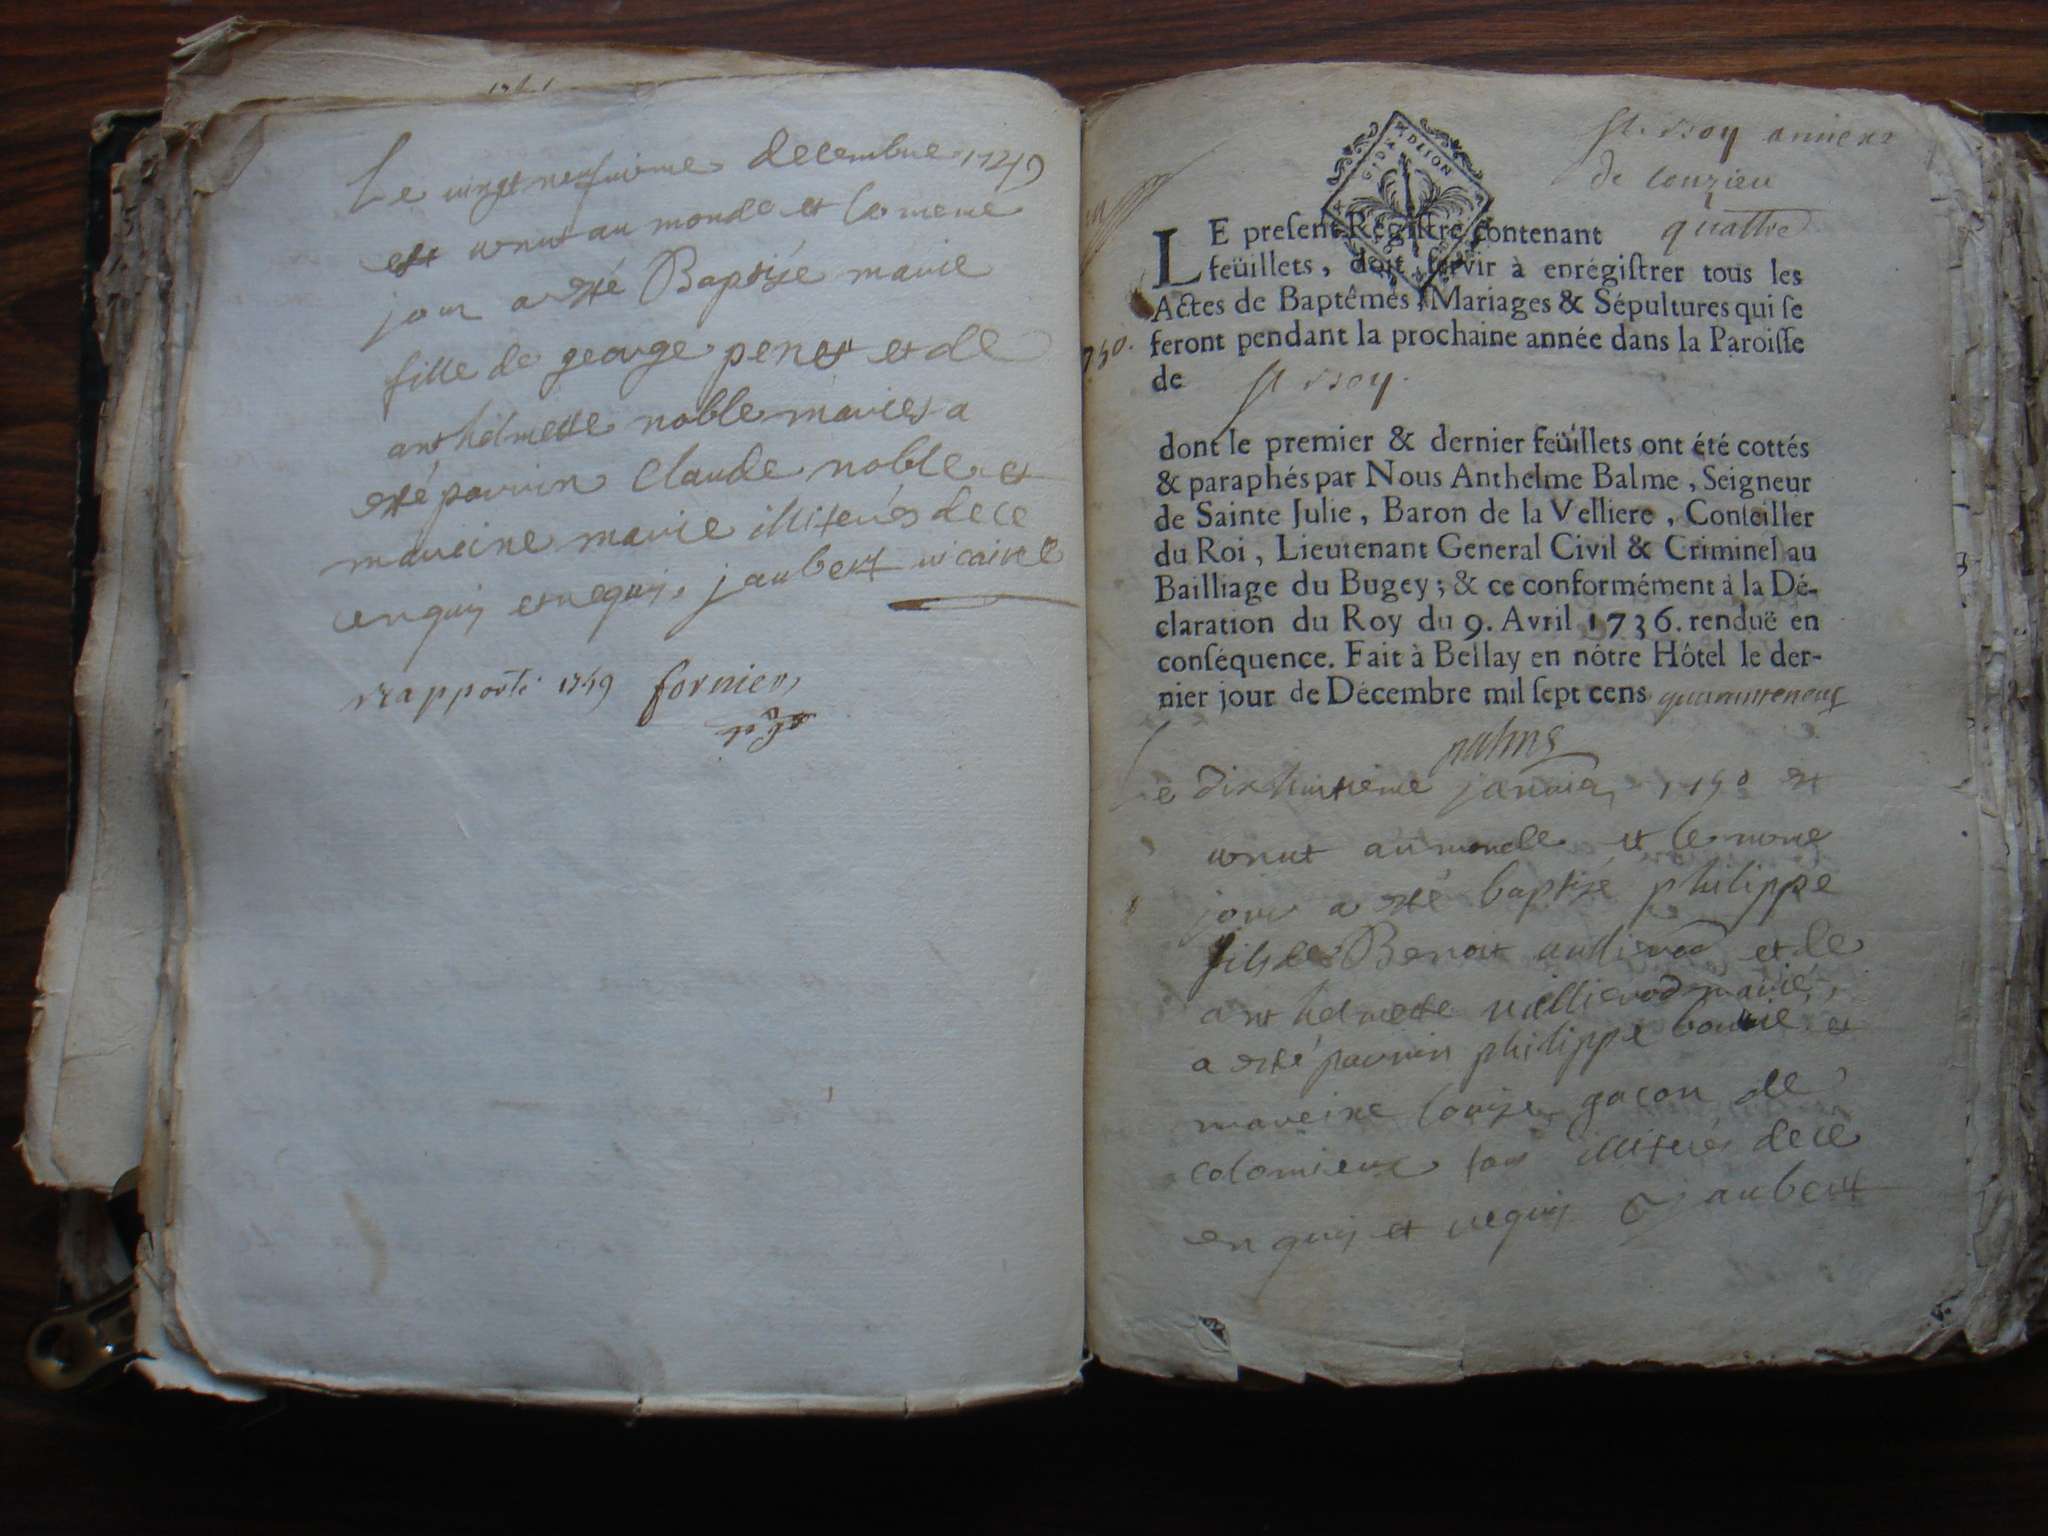 Le vingt neufvieme decembre 1749
est venut au monde et le meme
jour a esté Baptisée marie
fille de george penet et de
anthelmette noble mariés a
esté parrin claude noble et
maraine marie illiterés de ce
enquis et requis, jaubert vicaire
rapporté 1749 fornier,
St. annexe
de conzieu
GDA DIION
quattre
LE present Registre contenant
feüillets, doit servir à enrégistrer tous les
Actes de Baptêmes, Mariages & Sépultures qui se
feront pendant la prochaine année dans la Paroisse
de St
dont le premier & dernier feüillets ont été cottés
& paraphés par Nous Anthelme Balme, Seigneur
de Sainte Julie, Baron de la Velliere, Conseiller
du Roi, Lieutenant General Civil & Criminel au
Bailliage du Bugey; & ce conformément à la Dé-
claration du Roy du 9. Avril 1736. renduë en
conséquence. Fait à Bellay en nôtre Hôtel le der-
nier jour de Décembre mil sept cens quarante neuf
Le dixhuitieme janvier 1750 est
venut au monde et le meme
jour a esté baptisé philippe
fils de Benoit et de
anthelmette mariés,
a esté parrin philippe et
mareine louise gacon de
colomieux tous illiterés de ce
enquis et requis jaubert